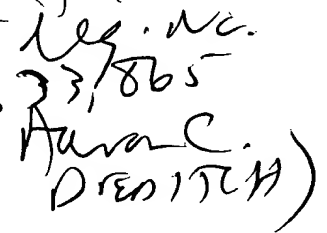 Reg. No.
33,865
Aaron C.
DEDITCH)